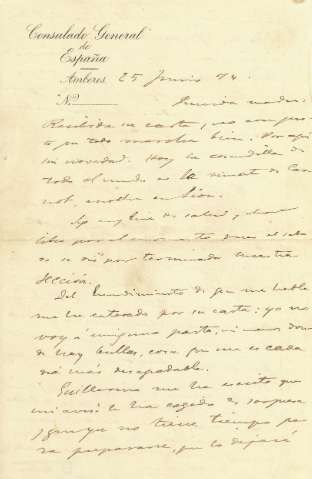 Consulado General
de
España
Amberes, 25 Junio 94.
N.º
Querida madre:
Recibida su carta, veo con gus-
to que todo marcha bien. Por aquí
sin novedad. Hoy la comidilla de
todo el mundo es la muerte de Car-
not, en Lion.
de salud, y
por terminado nuestra
sección.
Del hundimiento de que me habla
me he enterado por su carta: yo no
voy á ninguna parte, ni menos don-
de hay bullas, cosa que me es cada
día más desagradable.
Guillermo me ha escrito que
mi aviso le ha cogido de sorpresa
y que ya no tiene tiempo pa-
ra prepararse, que lo dejará